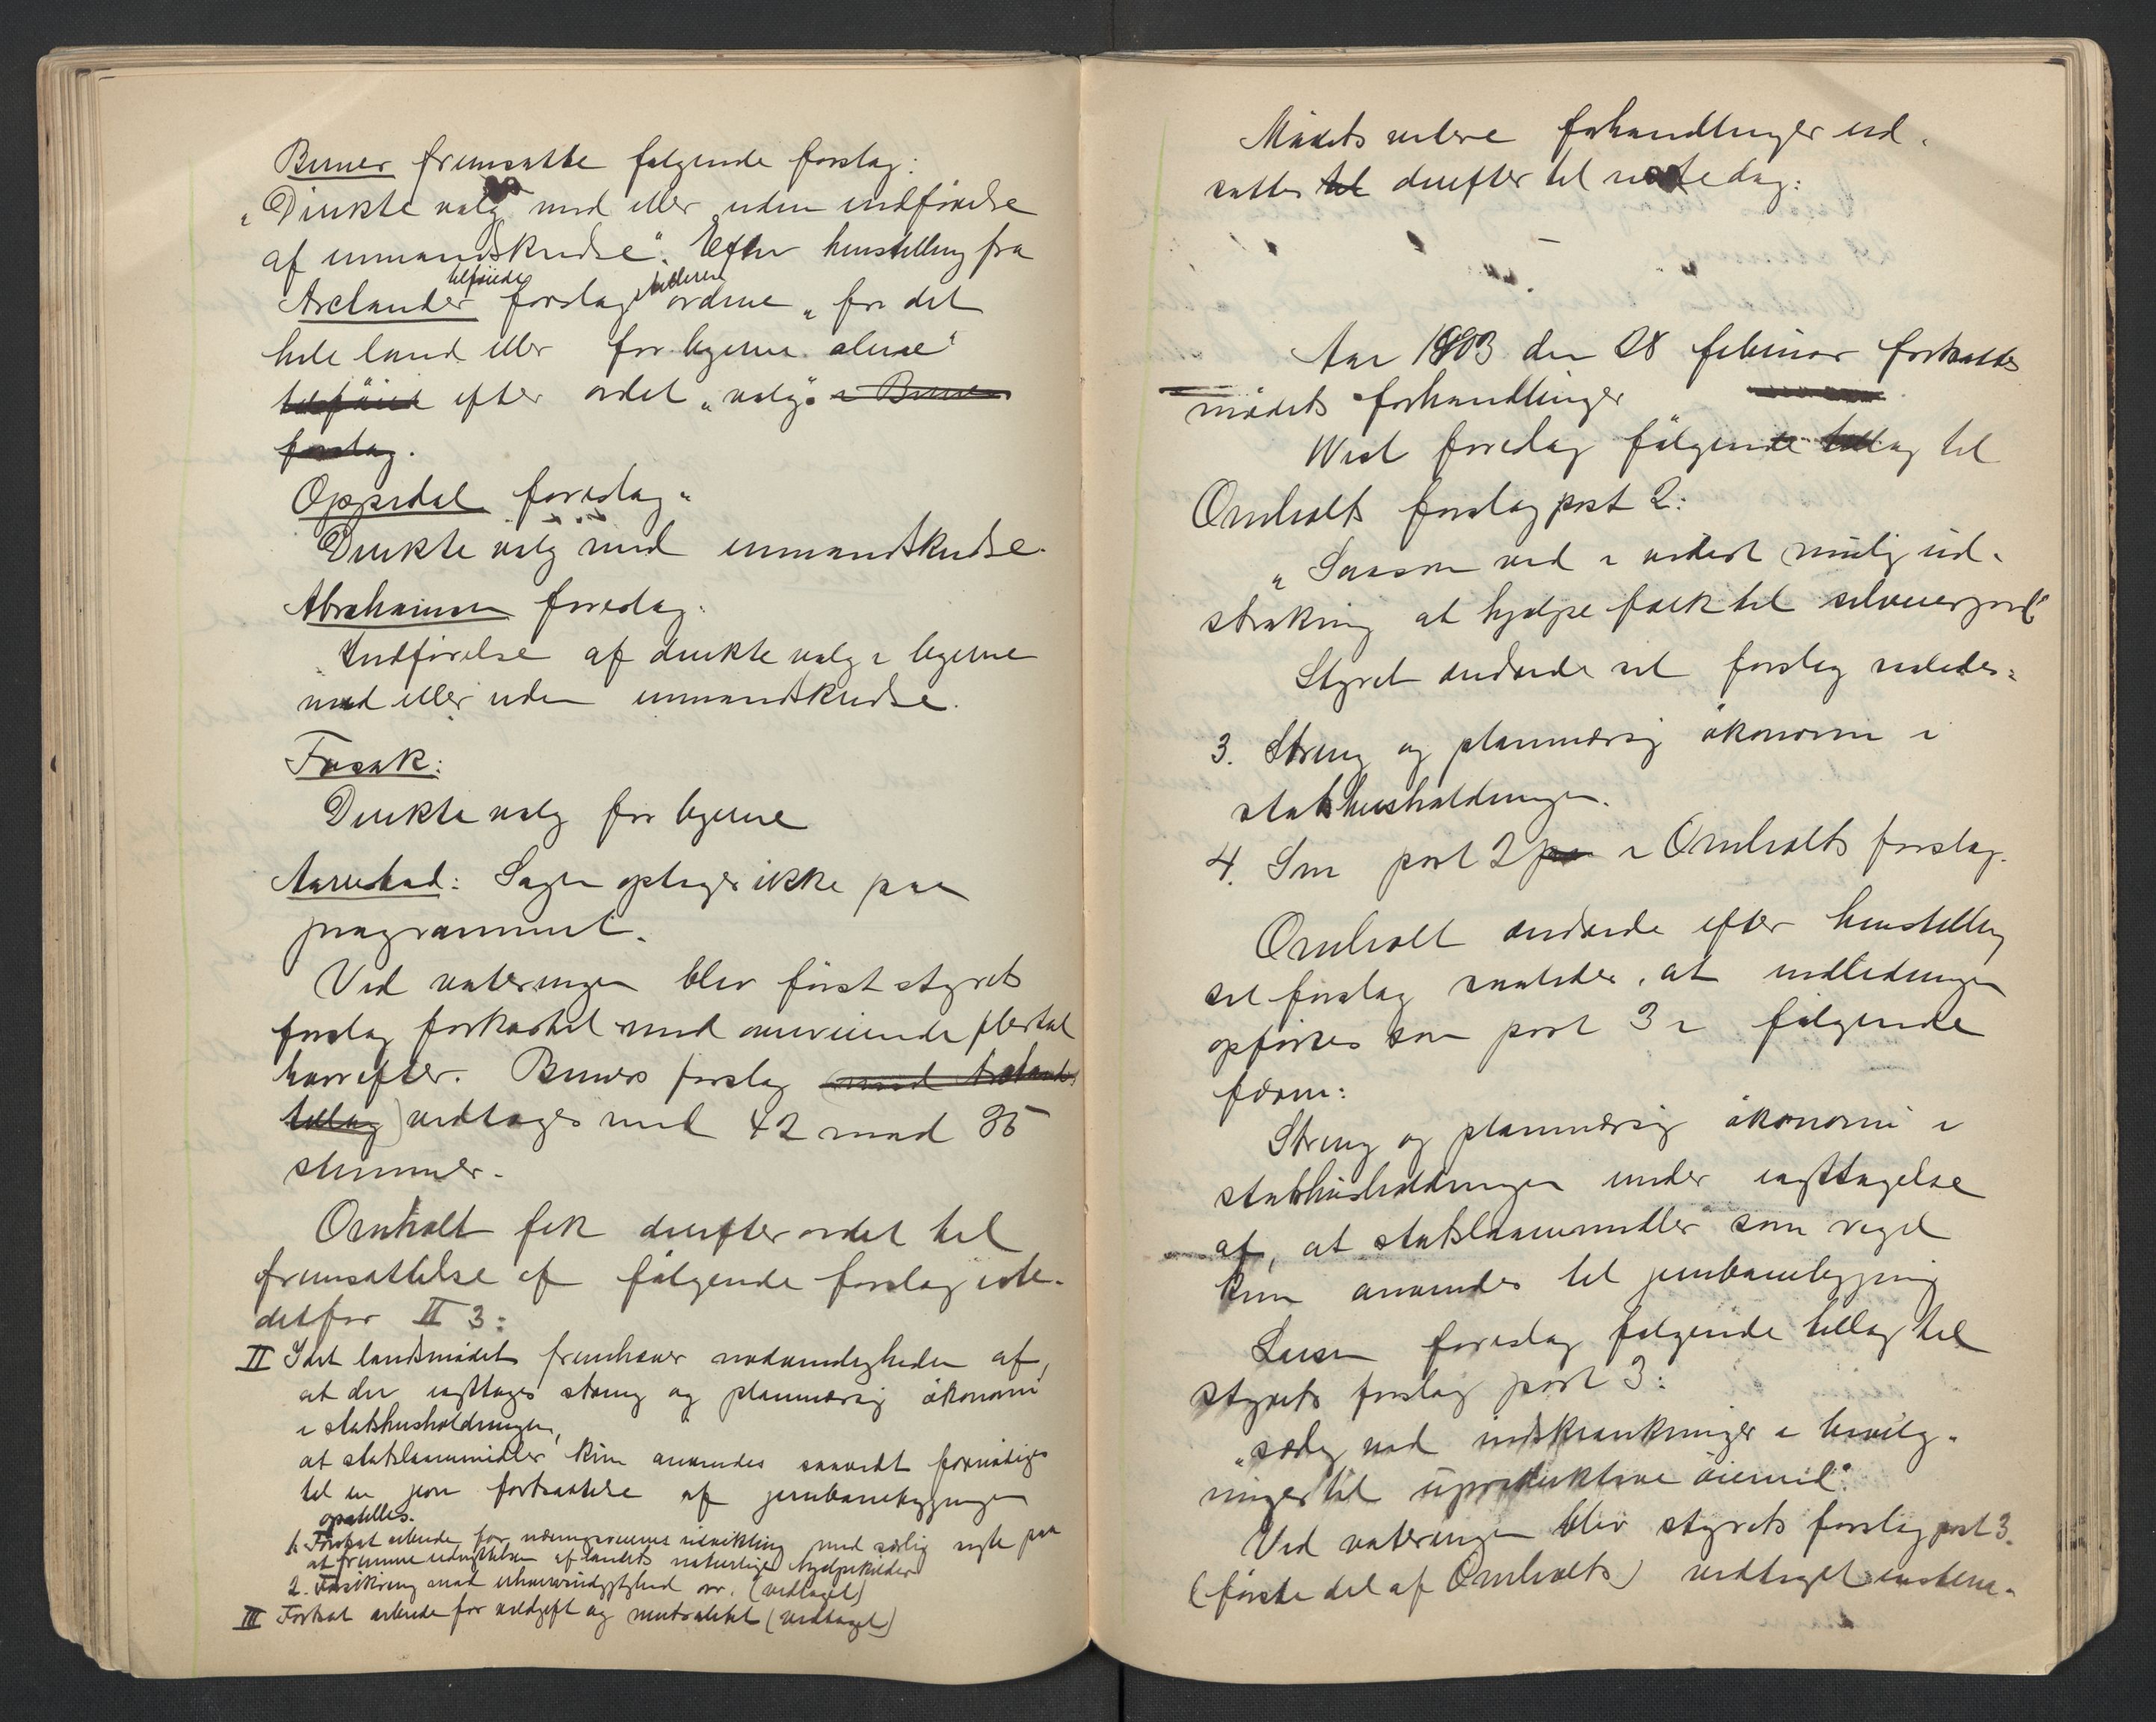 Berner fremsatte følgende forslag:
„Direkte valg med eller uden indførelse
af enmandskredse". Efter henstilling fra
Arctander tilføiedes forslaget ordene „for det
hele land eller for byerne alene"
tilføiet efter ordet „valg" i Berners
forslag.
Oppedal foreslog:
Direkte valg med enmandskredse.
Abrahamsen foreslog:
Indførelse af direkte valg i byerne
med eller uden enmandskredse.
Fosak:
Direkte valg for byerne
Aarrestad: Sagen optages ikke paa
programmet.
Ved voteringen blev først styrets
forslag forkastet med overveiende flertal
hvorefter Berners forslag (med Arctanders
tillæg) vedtages med 42 mod 35
stemmer.
Omholt fik derefter ordet til
fremsættelse af følgende forslag iste-
detfor II 3:
II Idet landsmødet fremhæver nødvendigheden af,
at der iagttages streng og planmæssig økonomi
i statshusholdningen,
at statslaanemidler kun anvendes saavidt fornødiges
til en jevn fortsættelse af jernbanebygningen
opstilles.
1. Fortsat arbeide for næringsveienes udvikling med særlig vegt paa
at fremme udnyttelsen af landets naturlige hjælpekilder
2. Forsikring mod erhvervsudygtighed osv. (vedtaget)
III Fortsat arbeide for voldgift og neutralitet (vedtaget)
Mødets videre forhandlinger ud-
sattes til derefter til næste dag.
Aar 1903 den 28 februar fortsattes
mødets forhandlinger
Wist foreslog følgende tillæg til
Omholts forslag post 2:
„Saasom ved i videst mulig ud-
strækning at hjælpe folk til selveierjord"
Styret ændrede sit forslag saaledes:
3. Streng og planmæssig økonomi i
statshusholdningen.
4. Som post 2 i Omholts forslag.
Omholt ændrede efter henstilling
sit forslag saaledes, at indledningen
opføres som post 3 i følgende
form:
Streng og planmæssig økonomi i
statshusholdningen under iagttagelse
af, at statslaanemidler som regel
kun anvendes til jernbanebygning
Larsen foreslog følgende tillæg til
styrets forslag post 3:
„særlig ved indskrænkninger i bevilg-
ninger til uproduktive øiemed".
Ved voteringen blev styrets forslag post 3.
(første del af Omholts) vedtaget enstem-